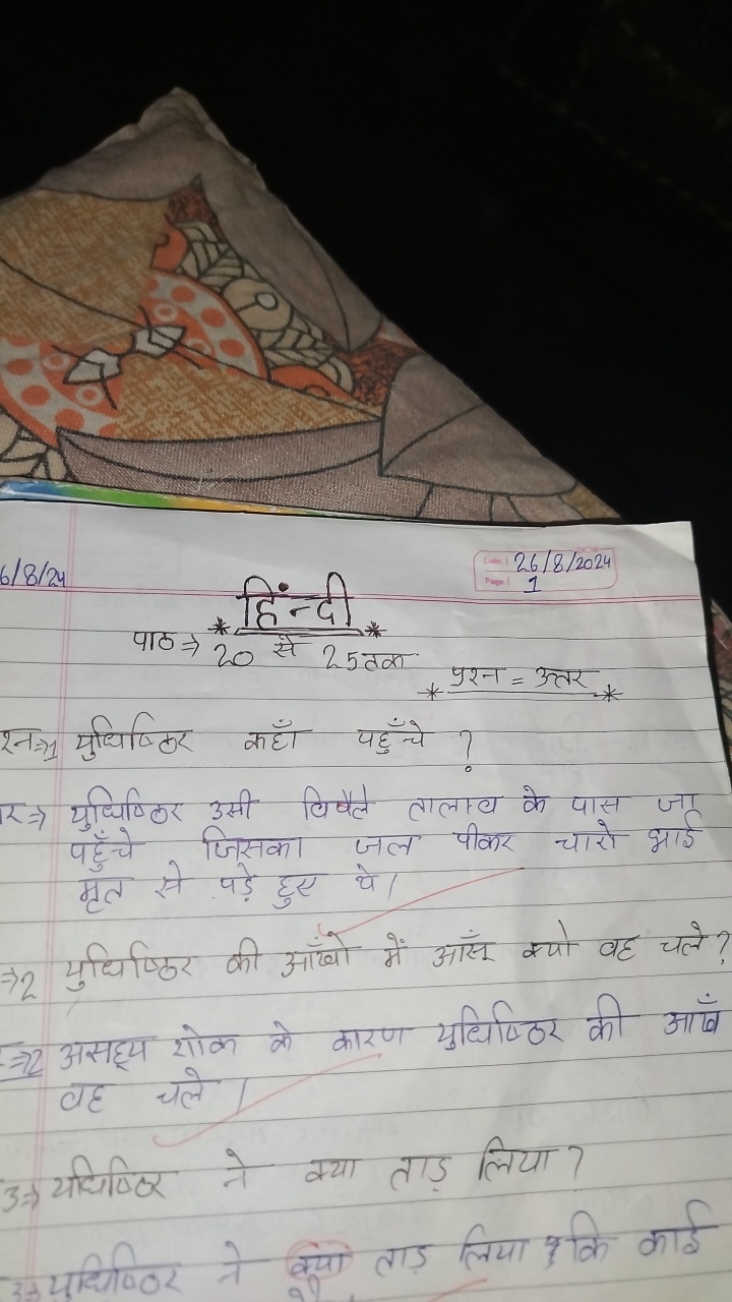 6/8/24
Date: 26/8/2024
Page: 1
हिंन्दी
पाठ⇒ 20 से 25 तक
प्रश्न = उत्तर
श्न⇒1 युधिष्ठिर कहाँ पहुँचे ?
र⇒ युधिष्ठिर उसी विषैले तालाब के पास जा
पहुँचे जिसका जल पीकर चारो भाई
मृत से पड़े हुए थे।
⇒2 युधिष्ठिर की आँखो में आँसू क्यो वह चले?
⇒2 असह्य शोक के कारण युधिष्ठिर की आँख
वह चले।
3⇒ यधिष्ठिर ने क्या ताड़ लिया?
3⇒ युधिष्ठिर ने क्या ताड़ लिया कि काई